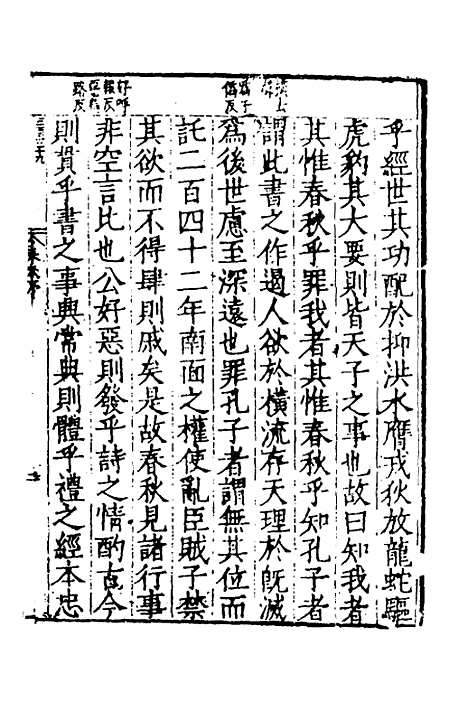 乎經世其功配於抑洪水膺戎狄放龍蛇驅
虎豹其大要則皆天子之事也故曰知我者
其惟春秋乎罪我者其惟春秋乎知孔子者
謂此書之作遏人欲於橫流存天理於旣滅
爲後世慮至深遠也罪孔子者謂無其位而
託二百四十二年南面之權使亂臣賊子禁
其欲而不得肆則戚矣是故春秋見諸行事
非空言比也公好惡則發乎詩之情酌古今
則貫乎書之事興常典則體乎禮之經本忠